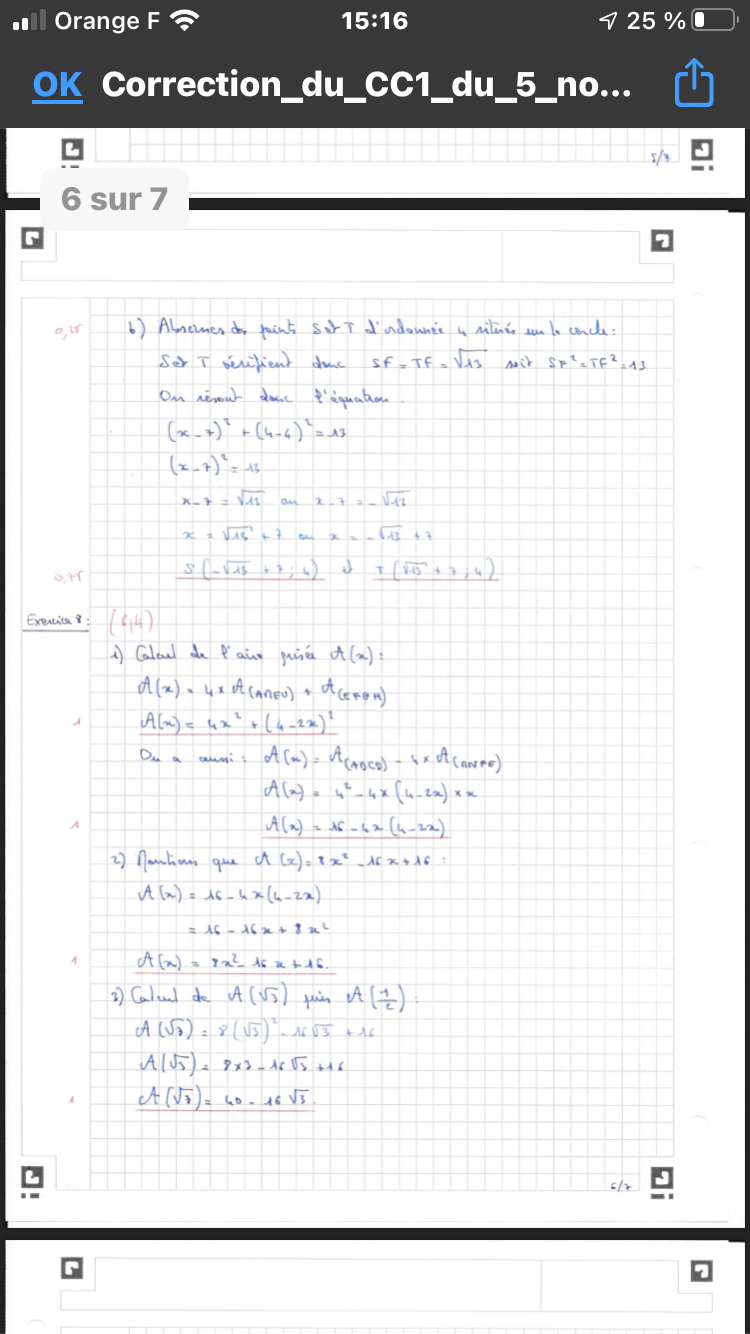 Orange F 15:16 25 %
OK Correction_du_CC1_du_5_no...
5/7
6 sur 7
0,25 b) Abscisses des points S et T d'ordonnée 4 situés sur le cercle :
S et T vérifient donc SF = TF = √13 soit SF² = TF² = 13
On résout donc l'équation.
(x-7)² + (4-4)² = 13
(x-7)² = 13
x-7 = √13 ou x-7 = -√13
x = √13 + 7 ou x = -√13 + 7
0,75 S(-√13 + 7 ; 4) et T(√13 + 7 ; 4)
Exercice 8 :
1) Calcul de l'aire grisée A(x) :
A(x) = 4 x A + A(EFGH)
1 A(x) = 4x² + (4-2x)²
On a aussi : A(x) = A(ABCD) - 4 x A
A(x) = 4² - 4 x (4-2x) x x
1 A(x) = 16 - 4x(4-2x)
2) Montrons que A(x) = 8x² - 16x + 16 :
A(x) = 16 - 4x(4-2x)
= 16 - 16x + 8x²
1 A(x) = 8x² - 16x + 16.
3) Calcul de A(√3) puis A(1/2) :
A(√3) = 8(√3)² - 16√3 + 16
A(√3) = 8x3 - 16√3 + 16
1 A(√3) = 40 - 16√3.
6/7